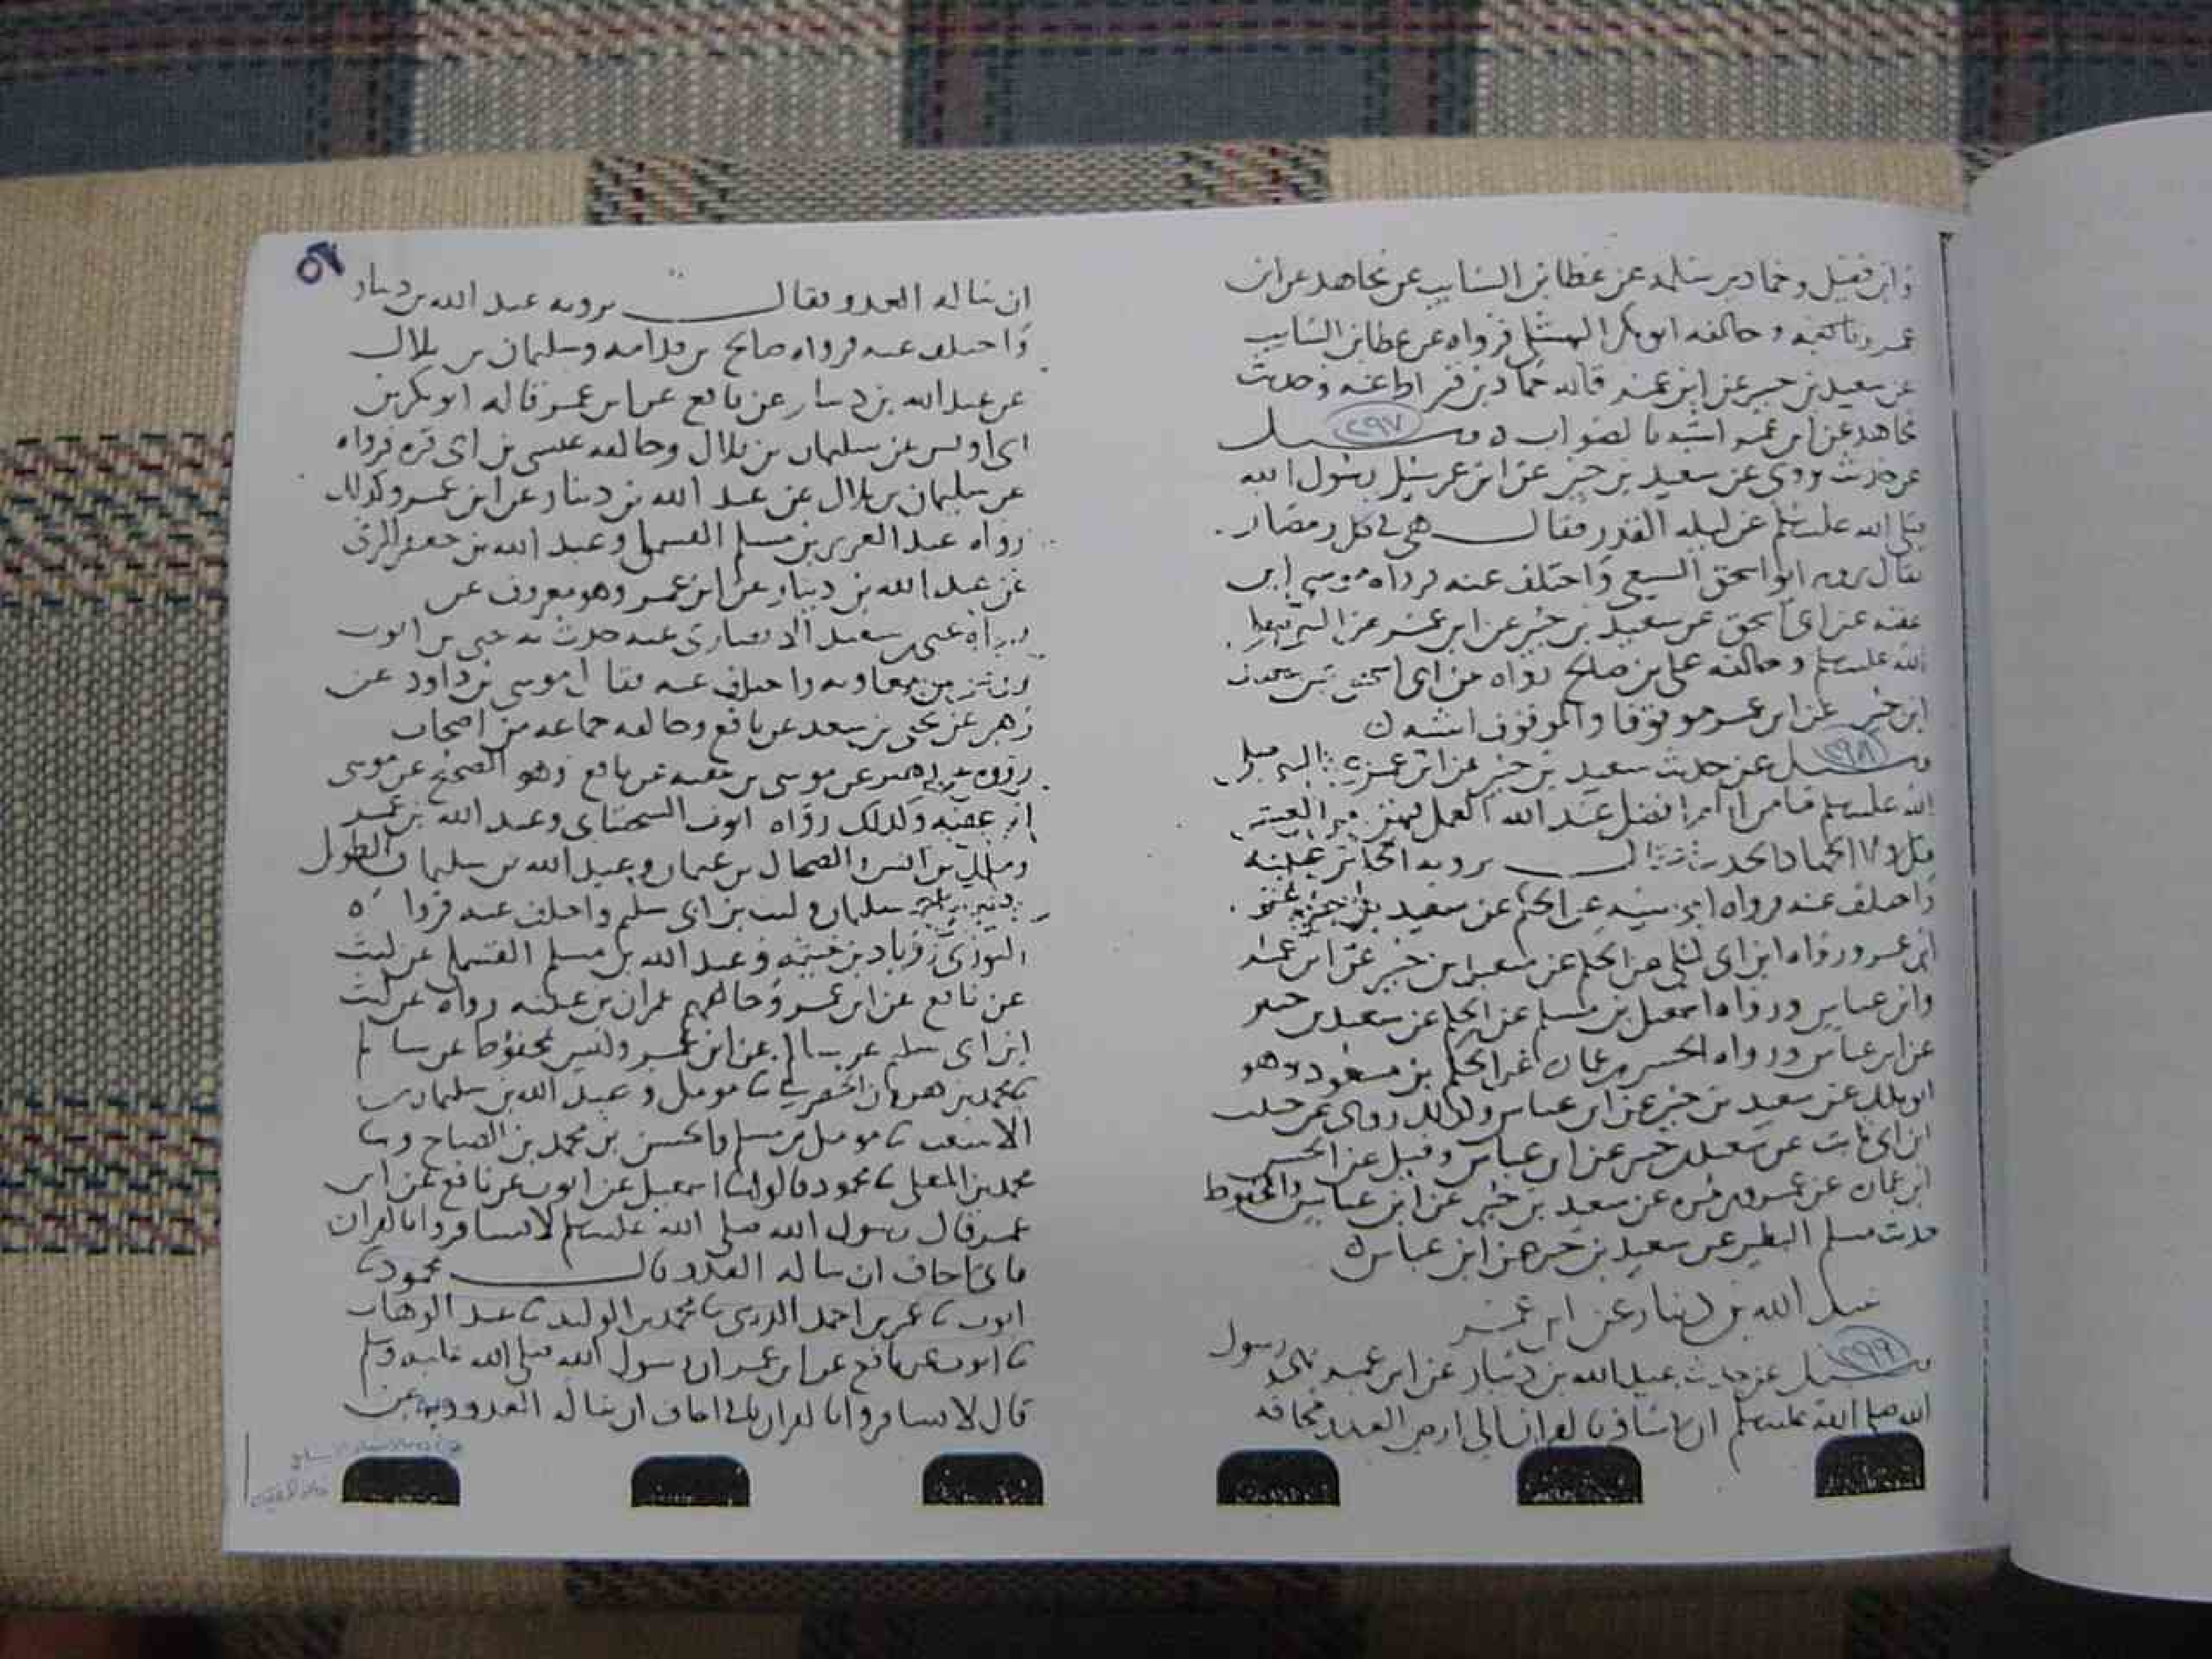 وابن فضيل وحماد بن سلمة عن عطا بن السايب عن مجاهد عن ابن
عمر وخالفه ابو بكر النهشلي فرواه عن عطا بن السايب
عن سعيد بن جبير عن ابن عمر قاله حماد بن قيراط عنه وحديث
مجاهد عن ابن عمر اشبه بالصواب ه وسيل
٢٩٧
عن حديث يروى عن سعيد بن جبير عن ابن عمر سيل رسول الله
صلى الله عليه وسلم عن ليله القدر فقال هي في كل رمضان
فقال يرويه ابو اسحق السبيعي واختلف عنه فرواه موسى ابن
عقبه عن ابي اسحق عن سعيد بن جبير عن ابن عمر عن النبي صلى
الله عليه وسلم وخالفه علي بن صالح رواه عن ابي اسحق عن سعيد
ابن جبير عن ابن عمر موقوفا والموقوف اشبه ن
٢٩٨
وسيل عن حديث سعيد بن جبير عن ابن عمر عن النبي صلى
الله عليه وسلم ما من ايام افضل عند الله العمل فيهن من العشر
قيل ولا الجهاد الحديث فقال يرويه الحكم بن عتيبه
واختلف عنه فرواه ابو شيبه عن الحكم عن سعيد بن جبير عن
ابن عمر ورواه ابن ابي ليلى عن الحكم عن سعيد بن جبير عن ابن عمر
وابن عباس ورواه اسمعيل بن مسلم عن الحكم عن سعيد بن جبير
عن ابن عباس ورواه الحسن بن عمان عن الحكم بن مسعود وهو
ابو بلال عن سعيد بن جبير عن ابن عباس وكذلك روي عن حبيب
ابن ابي ثابت عن سعيد بن جبير عن ابن عباس وقيل عن الحسن
ابن عمان عن عمرو بن مره عن سعيد بن جبير عن ابن عباس والمحفوظ
حديث مسلم البطين عن سعيد بن جبير عن ابن عباس ن
عبد الله بن دينار عن ابن عمر
٢٩٩
وسيل عن حديث عبد الله بن دينار عن ابن عمر نهى رسول
الله صلى الله عليه وسلم ان يسافر بالقران الى ارض العدو مخافه
٥٧
ان يناله العدو فقال يرويه عبد الله بن دينار
واختلف عنه فرواه صالح بن قدامه وسليمان بن بلال
عن عبد الله بن دينار عن نافع عن ابن عمر قاله ابو بكر بن
ابي اويس عن سليمان بن بلال وخالفه عيسى بن ابي قره فرواه
عن سليمان بن بلال عن عبد الله بن دينار عن ابن عمر وكذلك
رواه عبد العزيز بن مسلم القسملي وعبد الله بن جعفر المدني
عن عبد الله بن دينار عن ابن عمر وهو معروف عن
يحيى بن سعيد الانصاري عنه حدث به يحيى بن ايوب
وزهير بن معاويه واختلف عنه فقال موسى بن داود عن
زهير عن يحيى بن سعيد عن نافع وخالفه جماعه من اصحاب
زهير عن موسى بن عقبه عن نافع وهو الصحيح عن موسى
ابن عقبه وكذلك رواه ايوب السختياني وعبيد الله بن عمر
ومالك بن انس والضحاك بن عثمان وعبد الله بن سليمان الطويل
سليمان وليث بن ابي سليم واختلف عنه فرواه
الثوري وزياد بن خيثمه وعبد الله بن مسلم القسملي عن ليث
عن نافع عن ابن عمر وخالفهم عمران بن عيينه رواه عن ليث
ابن ابي سليم عن سالم عن ابن عمر وليس بمحفوظ عن سالم
نا محمد بن هرون الحضرمي نا مومل وعبد الله بن سليمان بن
الاشعث نا مومل بن مسلم والحسن بن محمد بن الصباح ونا
محمد بن المعلى نا محمود قالوا نا اسمعيل عن ايوب عن نافع عن ابن
عمر قال رسول الله صلى الله عليه وسلم لا تسافروا بالقران
فاني اخاف ان يناله العدو قال محمود نا
ايوب نا عمر بن احمد الدربي نا محمد بن الوليد نا عبد الوهاب
نا ايوب عن نافع عن ابن عمر ان رسول الله صلى الله عليه وسلم
قال لا تسافروا بالقران فاني اخاف ان يناله العدو وبه عن